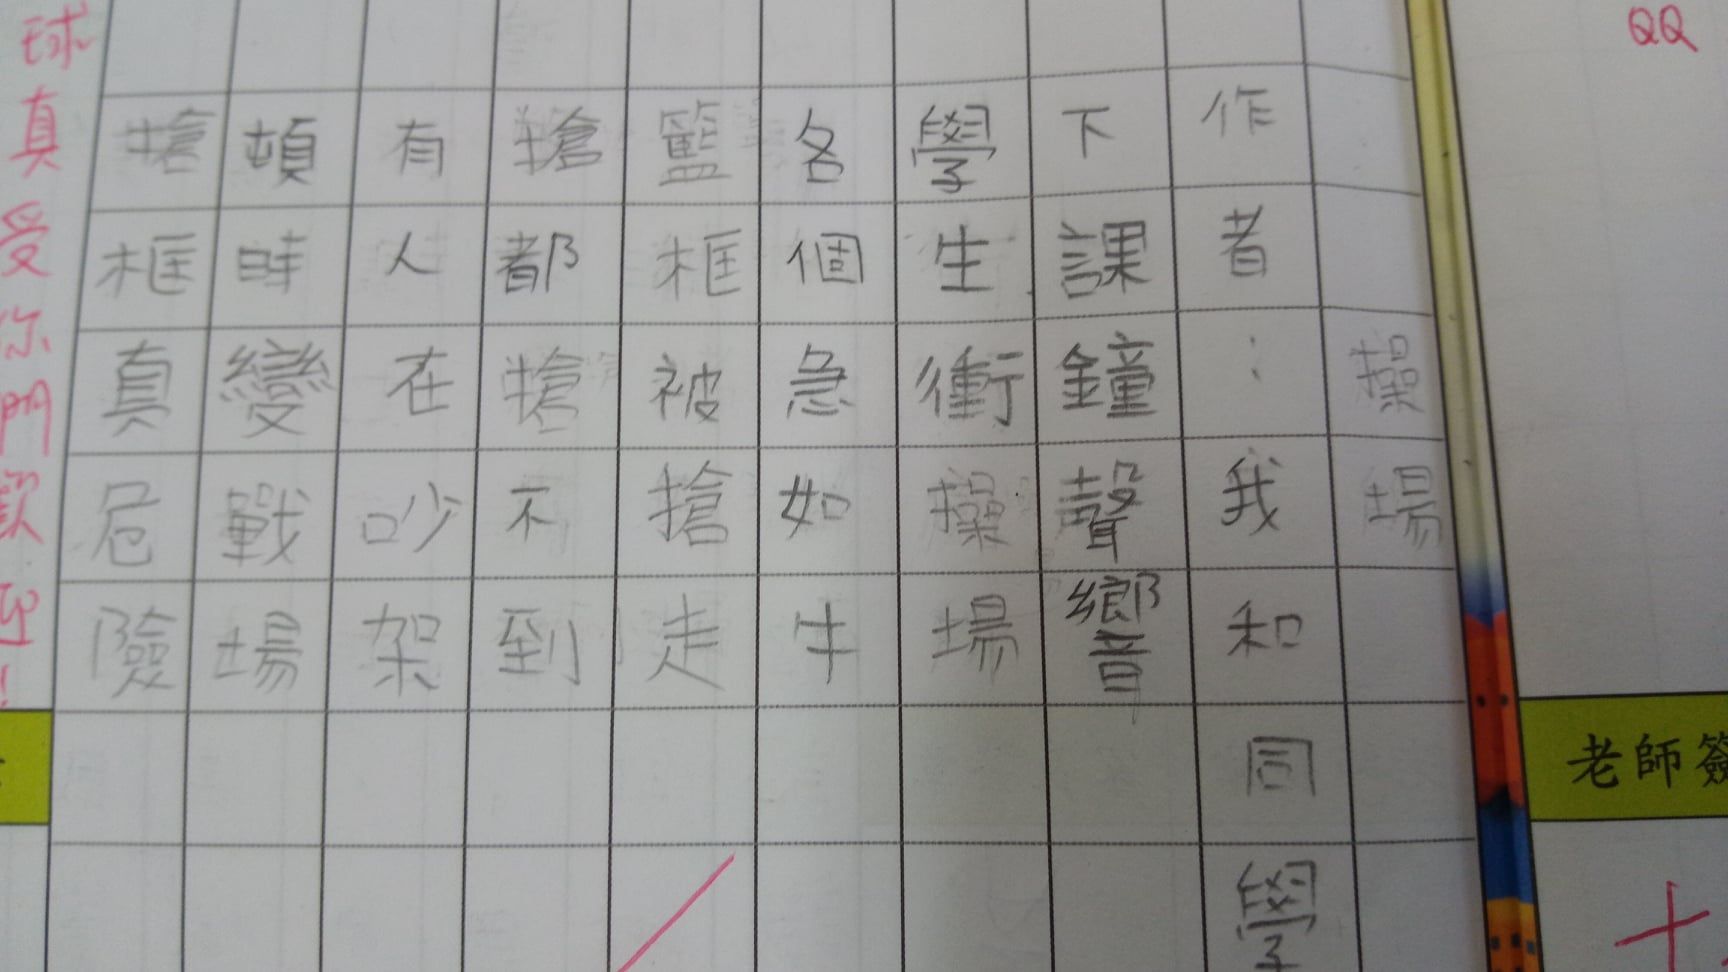 QQ
老師簽
操場
作者：我和同學
下課鐘聲響
學生衝操場
各個急如牛
籃框被搶走
搶都搶不到
有人在吵架
頓時變戰場
搶框真危險
球真受你門歡迎！